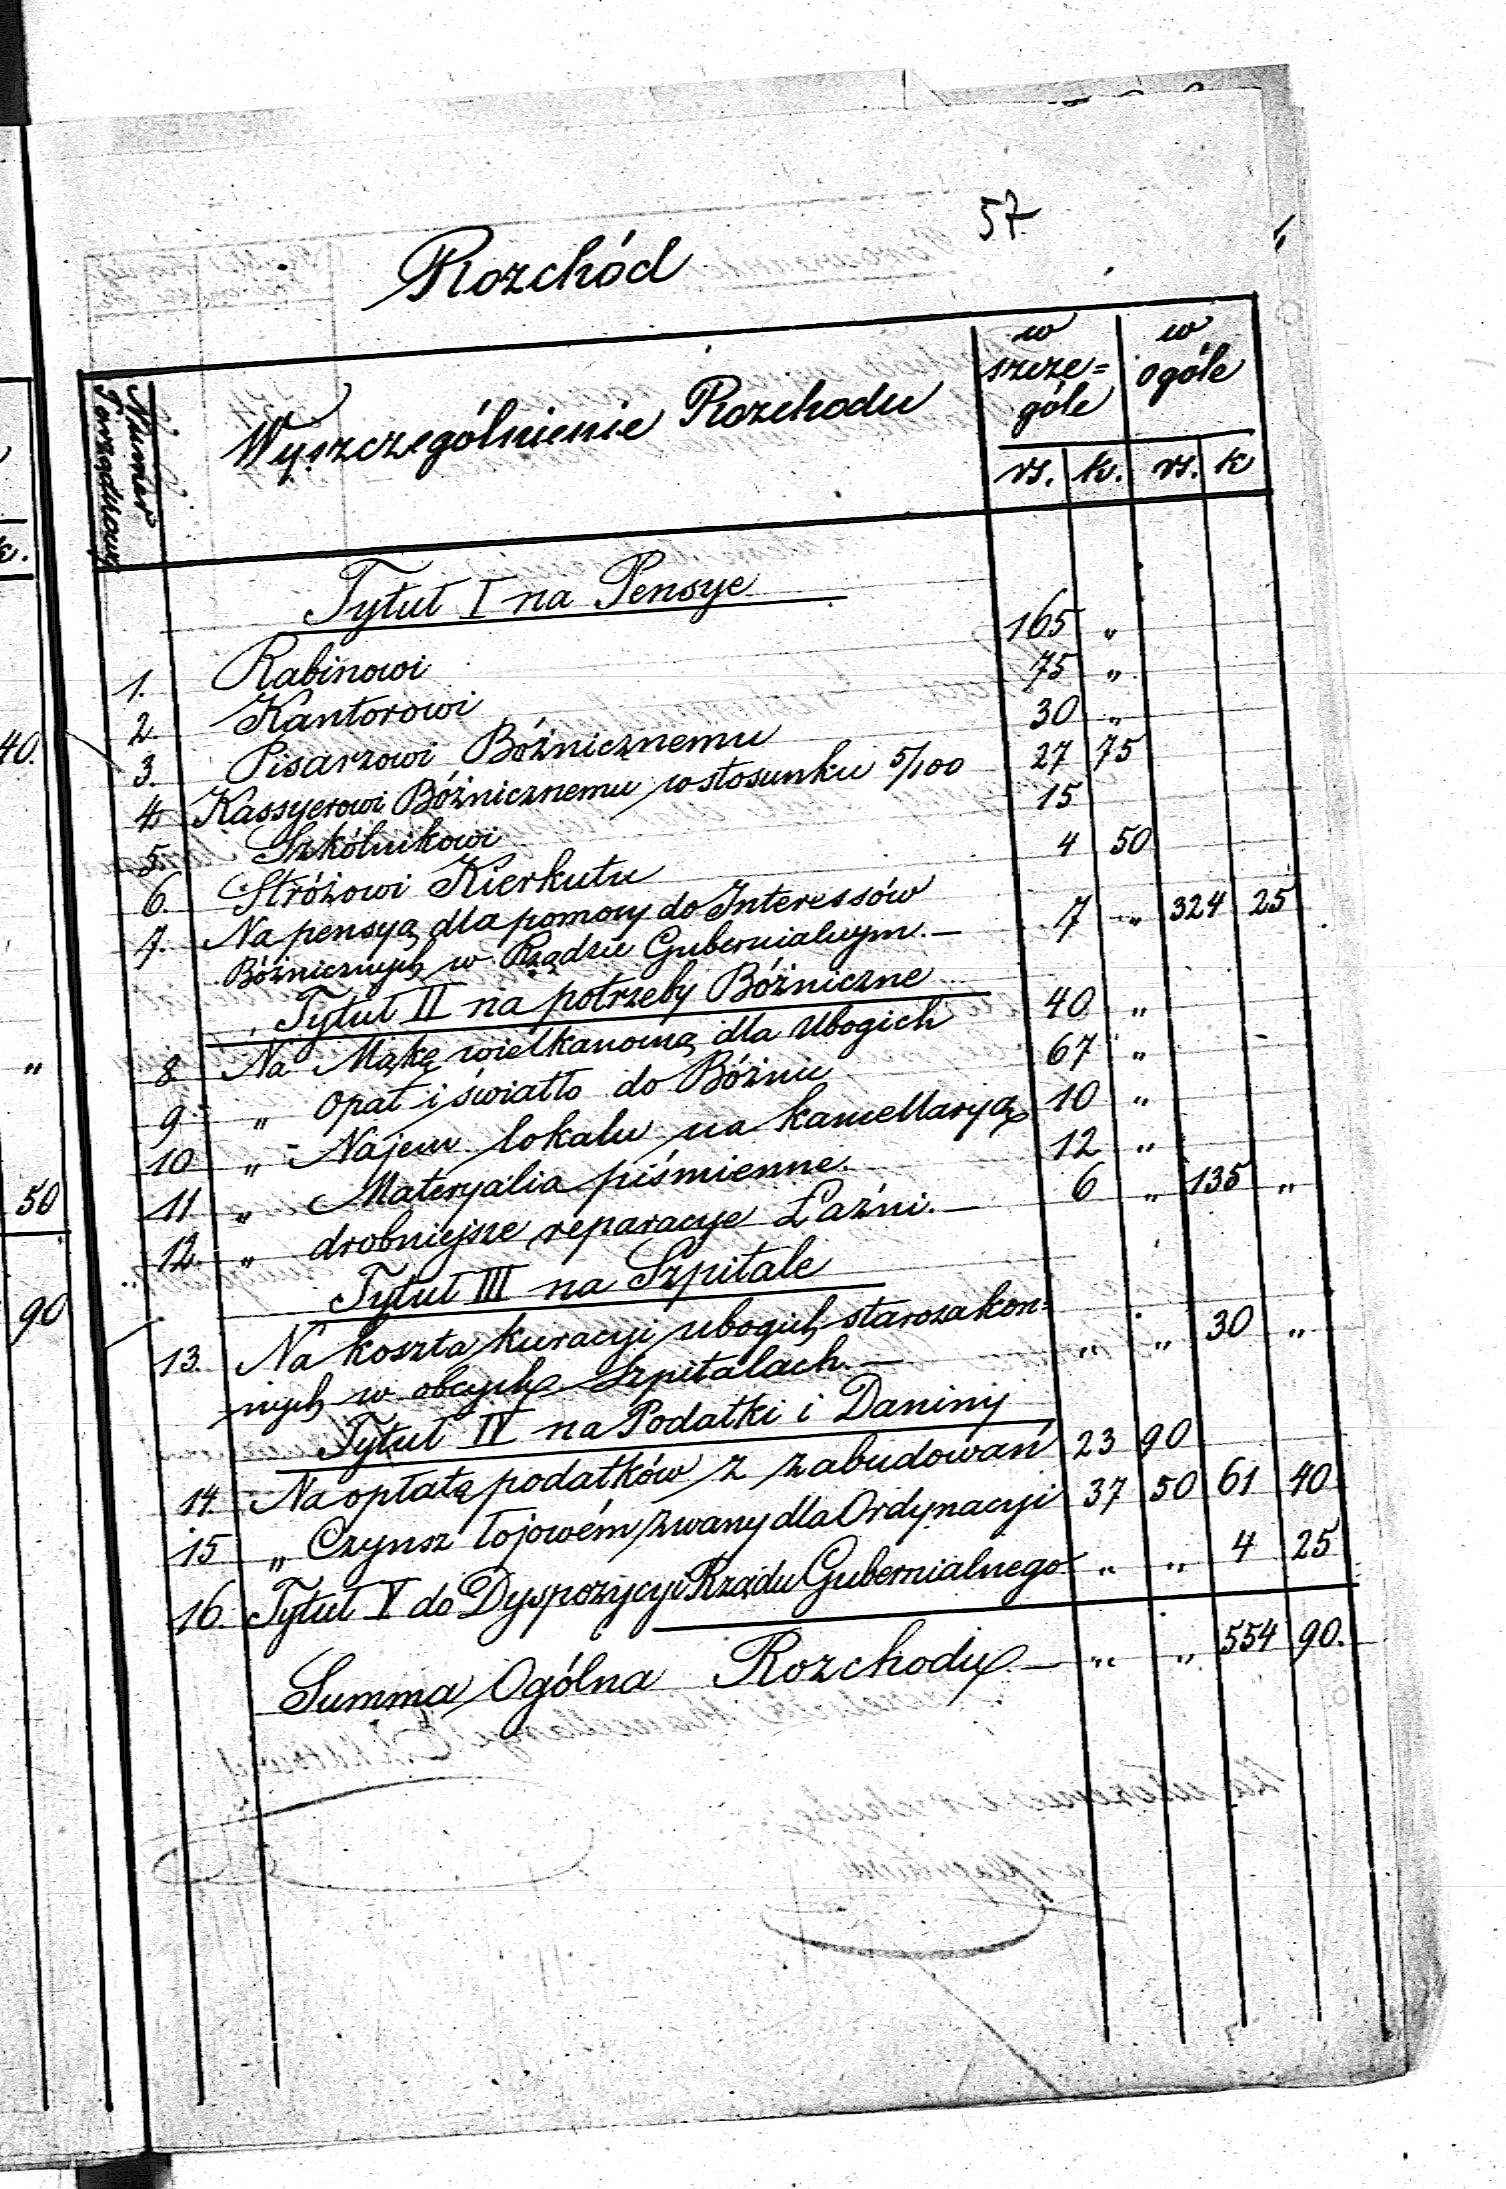 57
Rozchód
Numer Porządkowy
Wyszczególnienie Rozchodu
w szcze= góle
w ogóle
rs. k. rs. k
Tytuł I na Pensye
1. Rabinowi 165 „
2. Kantorowi 75 „
3. Pisarzowi Bóźnicznemu 30 „
4. Kassyerowi Bóźnicznemu w stosunku 5/100 27 75
5. Szkólnikowi 15
6. Stróżowi Kierkutu 4 50
7. Na pensyą dla pomocy do Interessów
Bóźnicznych w Rządzie Gubernialnym.— 7 „ 324 25
Tytuł II na potrzeby Bóźniczne
8 Na Mąkę wielkanocną dla Ubogich 40 „
9 „ Opał i światło do Bóźnic 67 „
10 „ Najem lokalu na kancellaryą 10 „
11 „ Materyalia piśmienne. 12 „
12. „ drobniejsze reparacye Łaźni.— 6 „ 135 „
Tytuł III na Szpitale
13. Na koszta kuracyi ubogich starozakon=
nych w obcych Szpitalach.— „ „ 30 „
Tytuł IV na Podatki i Daniny
14. Na opłatę podatków z zabudowań 23 90
15 „ Czynsz łojowém zwany dla Ordynacyi 37 50 61 40
16. Tytuł V do Dyspozycyi Rządu Gubernialnego „ „ 4 25
Summa Ogólna Rozchodu.— „ „ 554 90.
40.
„
50
90
k.